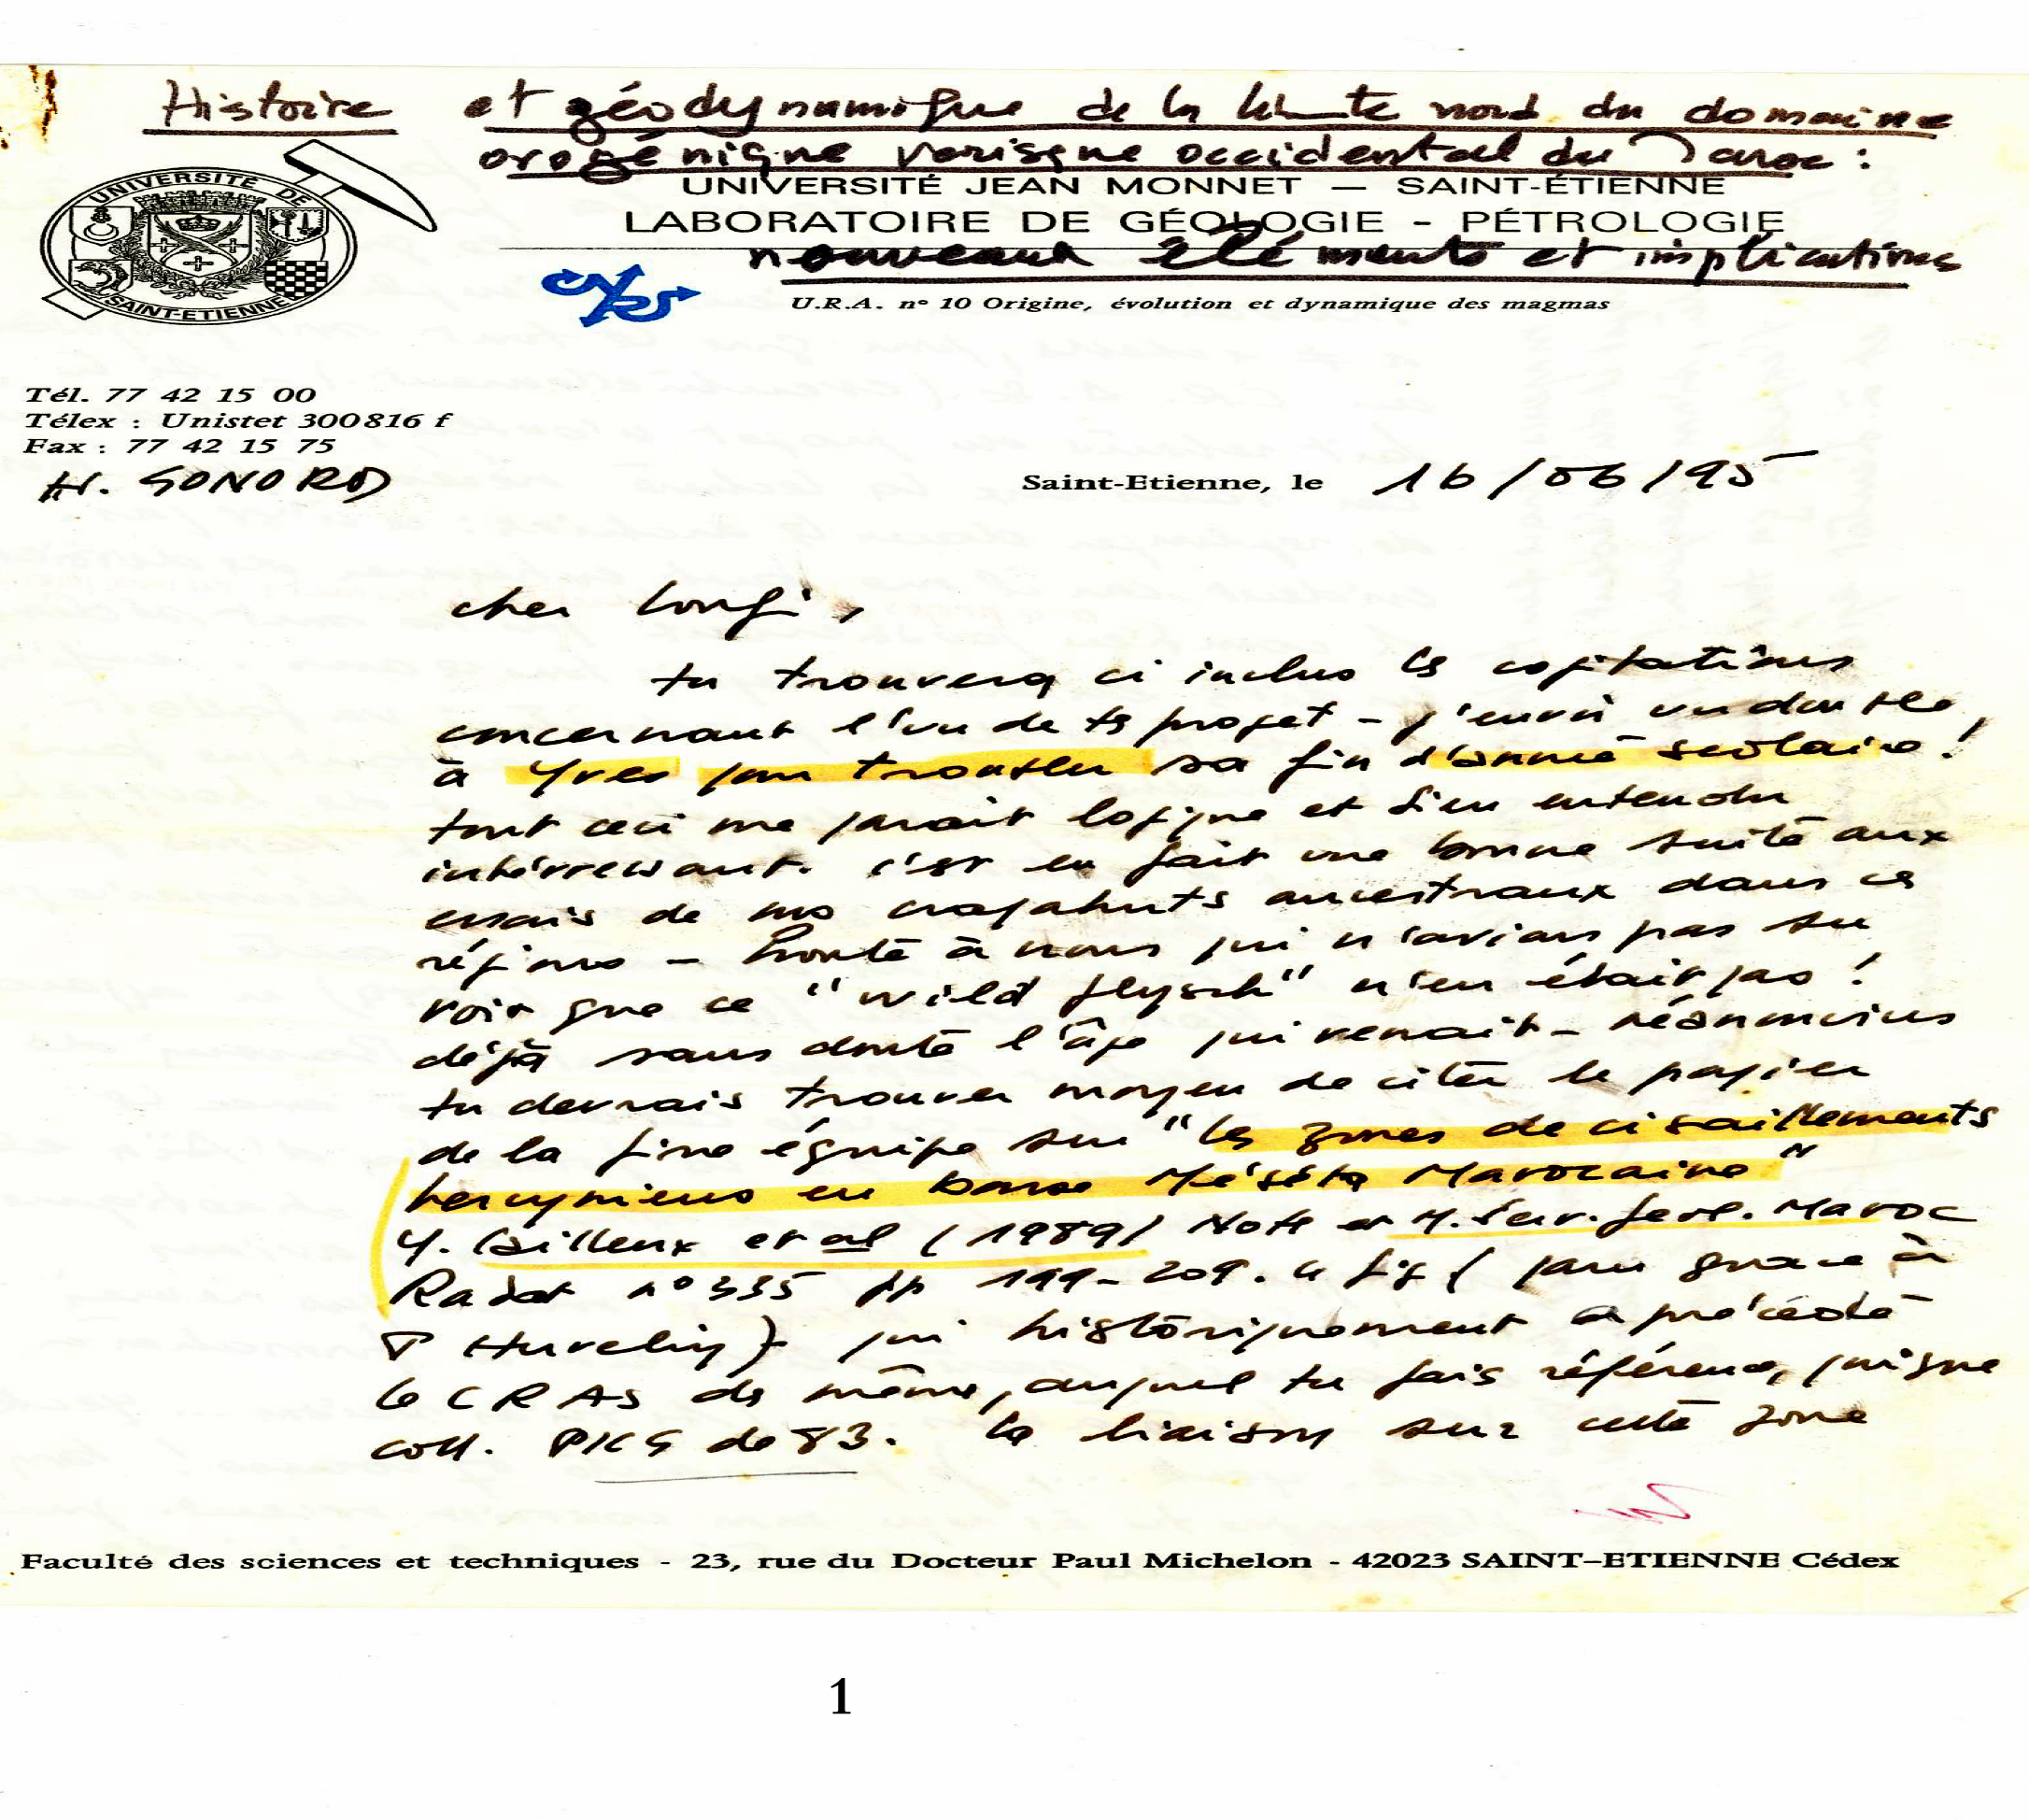 Histoire et géodynamique de la limite nord du domaine
orogénique varisque occidental du Maroc :
UNIVERSITÉ DE
SAINT-ETIENNE
UNIVERSITÉ JEAN MONNET — SAINT-ÉTIENNE
LABORATOIRE DE GÉOLOGIE - PÉTROLOGIE
nouveaux éléments et implications
U.R.A. nº 10 Origine, évolution et dynamique des magmas
Tél. 77 42 15 00
Télex : Unistet 300816 f
Fax : 77 42 15 75
H. GONORD
Saint-Etienne, le 16/06/95
cher
tu trouvera ci inclus les cogitations
concernant l'vu de ts projet - j'envoi un double,
à Yves pour troubler sa fin d'année scolaire !
tout ceci me parait logique et bien entendu
intérressant. c'est en fait une bonne suite aux
essais de nos crapahuts ancestraux dans ces
régions - honte à nous qui n'avions pas su
voir que ce "wild flysch" n'en était pas !
déjà sans doute l'âge qui venait - néanmoins
tu devrais trouver moyen de citer le papier
de la fine équipe sur "les zones de cisaillements
hercyniens en basse Méséta Marocaine"
Y. Cailleux et al (1989) Note et M. Serv. geol. Maroc
Rabat nº 335 pp 199-209. 4 fig (paru grace à
P Huvelin) - qui historiquement a précédé
le CRAS des même, auquel tu fais référence, puisque
coll. PICG de 83. la liaison sur cette zone
Faculté des sciences et techniques - 23, rue du Docteur Paul Michelon - 42023 SAINT-ETIENNE Cédex
1